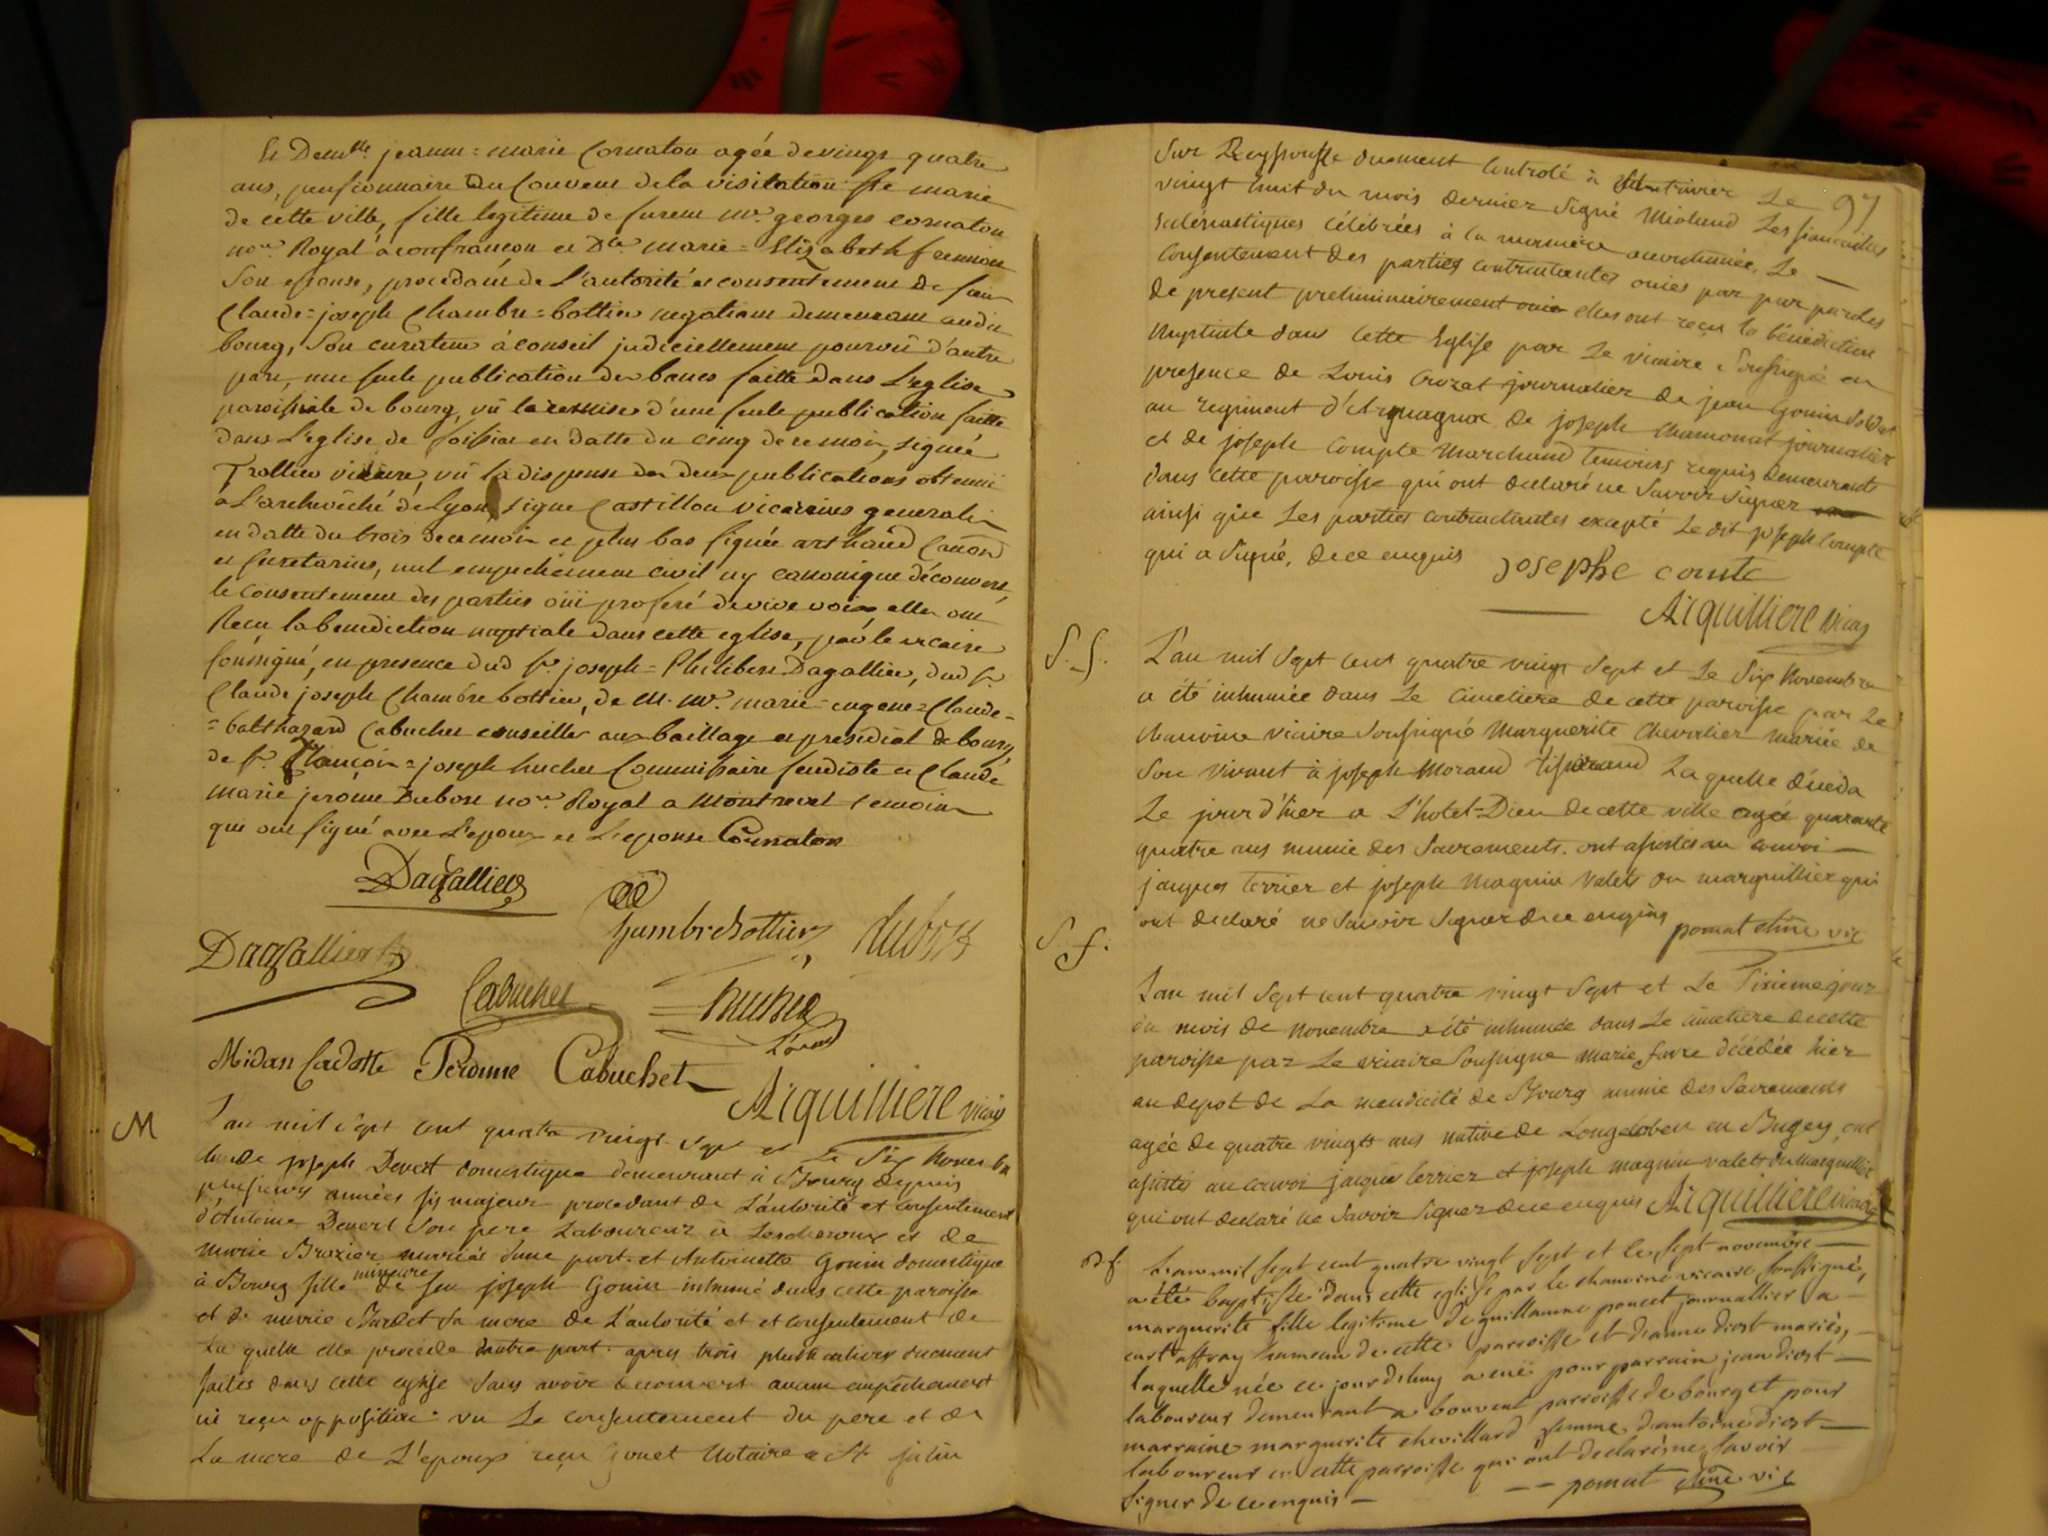 Et Demlle jeanne=marie Cornaton agée de vingt quatre
ans, pensionnaire Du Couvent de la visitation Ste marie
de cette ville, fille legitime de furent mr. georges cornaton
nore. Royal a confrançon et Dle marie=Elizabeth
Son epouse, procedant de L'autorité et consentement de sieur
Claude=joseph Chambre=bottier negotiant demeurant audit
bourg, Son curateur à conseil judiciellement pourvû d'autre
part, une seule publication de bancs faitte Dans L'eglise
paroissiale de bourg, vû la remise d'une seule publication faitte
dans L'eglise de foissiat en datte du cinq de ce mois, signée
Trollieu vicaire, vû la dispense des deux publications obtenuë
a L'archevêché de Lyon signe Castillon vicarius generalis
en datte du trois de ce mois et plus bas signée arthaud
et secretarius, nul empechement civil ny canonique découvert
le consentement des parties oüi proferé de vive voix, elles ont
Recu la benediction nuptiale dans cette eglise, par le vicaire
soussigné, en presence dud Sr. joseph=Philibert Dagallier, dud Sr.
Claude joseph Chambre bottier, de M. Mr. marie=eugene=Claude=
=balthazard Cabuchet conseiller aux baillage et presidial de bourg
de Sr. françois=joseph huchet Commissaire feudiste et Claude
marie jerome Dubost nore. Royal a Montrevel temoins
qui ont signé avec L'epoux et L'epouse Cornaton
Dagallier
Chambrebottier dubost
Dagallier
Cabuchet huchet
Midan Cadotte Peronne Cabuchet
Aiquilliere vicaire
M
L'an mil sept cent quatre vingt sept et Le Six Novembre
Claude joseph Devert domestique demeurant à Bourg depuis
plusieurs années fils majeur procedant de L'autorité et consentement
d'Antoine Devert Son pere Laboureur à Lescheroux et de
Marie Brozier mariés d'une part. et Antoinette Gonin domestique
à Bourg fille mineure de feu joseph Gonin inhumé dans cette paroisse
et de marie Bardet sa mere de L'autorité et et consentement de
La quelle elle procede d'autre part. apres trois publications duement
faites dans cette eglise Sans avoir decouvert aucun empêchement
ni reçu opposition. vu Le consentement du pere et de
La mere de L'epoux reçu Gonet Notaire a St julin
97
Sur Reyssouse duement Controlé à St trivier Le
vingt huit du mois dernier Signé Michaud Les fiancailles
eclésiastiques célébrées à la maniere accoutumée, Le
Consentement des parties contractantes ouies par par paroles
de present preliminairement ouie elles ont reçu la bénédiction
Nuptiale dans cette Eglise par Le vicaire Soussigné en
presence de Louis Crozat journalier de jean Gonin Soldat
au regiment d', de joseph Chamonat journalier
et de joseph compte Marchand temoins requis Demeurants
dans cette paroisse qui ont declaré ne Savoir Signer
ainsi que Les parties contractantes excepté Le dit joseph Compte
qui a Signé, de ce enquis josephe comte
Aiquilliere vicaire
S. S.
L'an mil Sept cent quatre vingt Sept et Le Six Novembre
a été inhumée dans Le Cimetiere de cette paroisse par Le
Chanoine vicaire Soussigné Marguerite Chevalier mariée de
Son vivant à joseph Morand tisserand La quelle déceda
Le jour d'hier a L'hotel-Dieu de cette ville agée quarante
quatre ans munie des Sacrements. ont assistés au convoi
jaques terrier et joseph Magnin valets du marguillier qui
ont declaré ne Savoir Signer de ce enquis pomat chne vic
S. S.
L'an mil Sept cent quatre vingt Sept et Le Sixieme jour
du mois de Novembre a été inhumée dans Le Cimetiere de cette
paroisse par Le vicaire Soussigné Marie favre décédée hier
au depot de La mendicité de Bourg munie des Sacrements
agée de quatre vingts ans native de en Bugey, ont
assistés au convoi jaques terrier et joseph magnin valets du marguillier
qui ont declaré ne Savoir Signer de ce enquis Aiquilliere vicaire
B f.
L'an mil sept cent quatre vingt sept et le sept novembre
a été baptisée dans cette eglise par le chanoine vicaire soussigné,
marguerite fille legitime de guillaume poncet journallier a
hameau de cette parroisse et d'anne diost mariés,
laquelle née ce jourd'huy a eue pour parrain jean diost
laboureur demeurant a bouvent parroisse de bourg et pour
marraine marguerite chevillard femme d'antoine diost
laboureur en cette parroisse qui ont declarés ne savoir
signer de ce enquis pomat chne vic